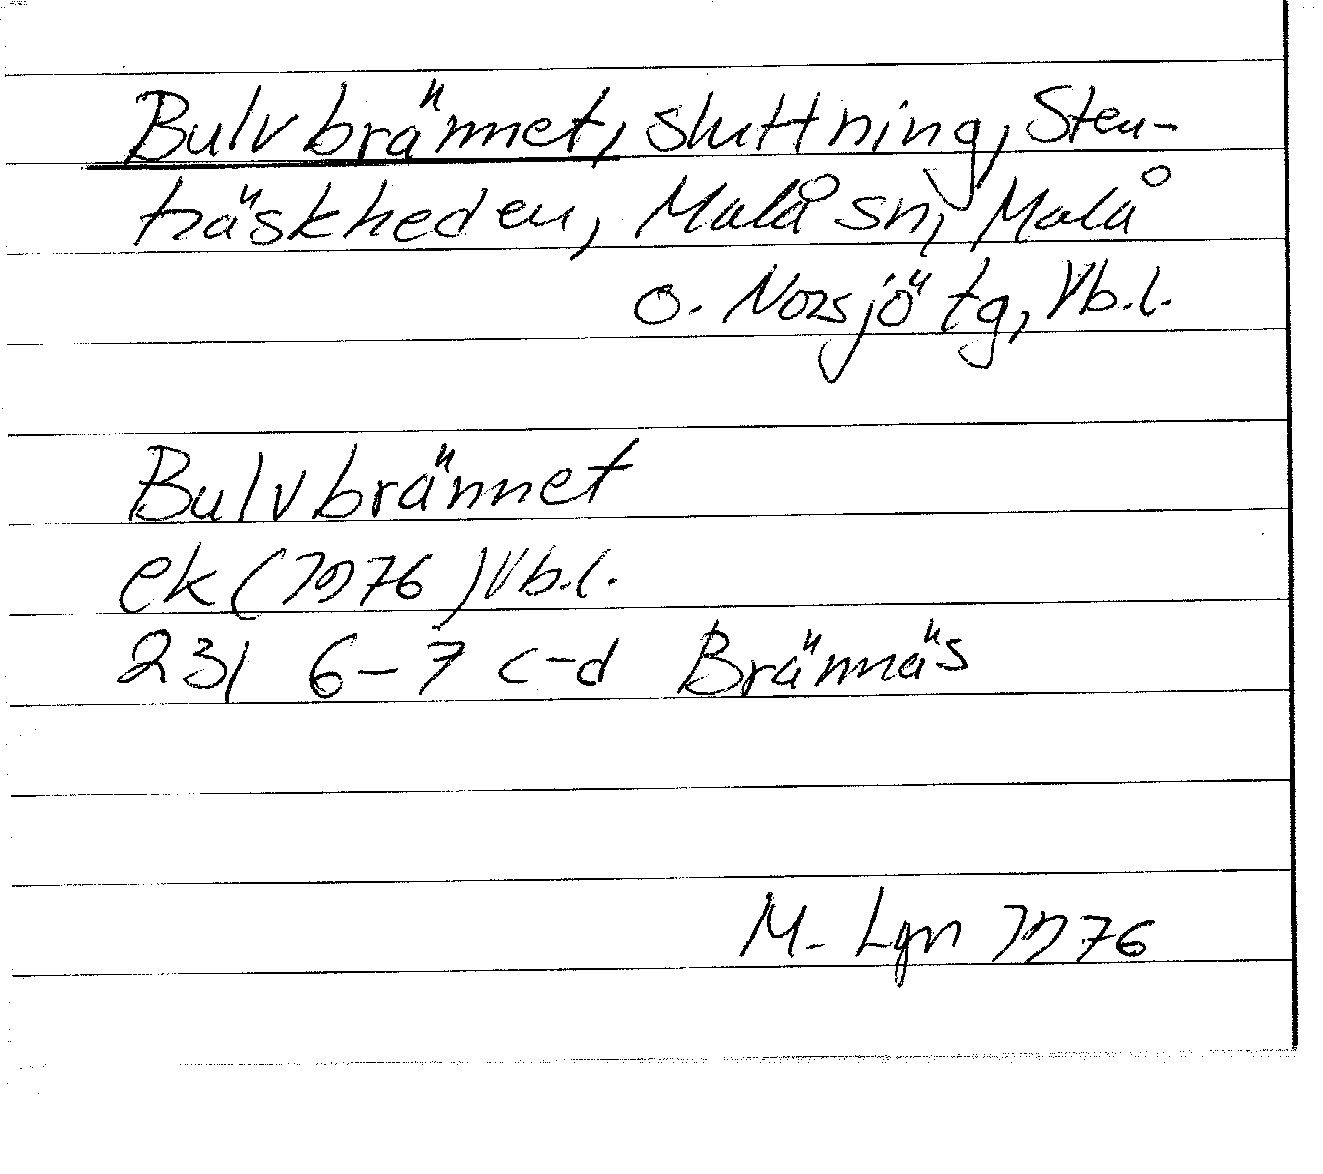 Bulvbrännet, sluttning, Sten-
träskheden, Malå sn, Malå
o. Norsjö tg, Vb.l.
Bulvbrännet
ek (1976) Vb.l.
23I 6-7 c-d Brännäs
M. Lgn 1976